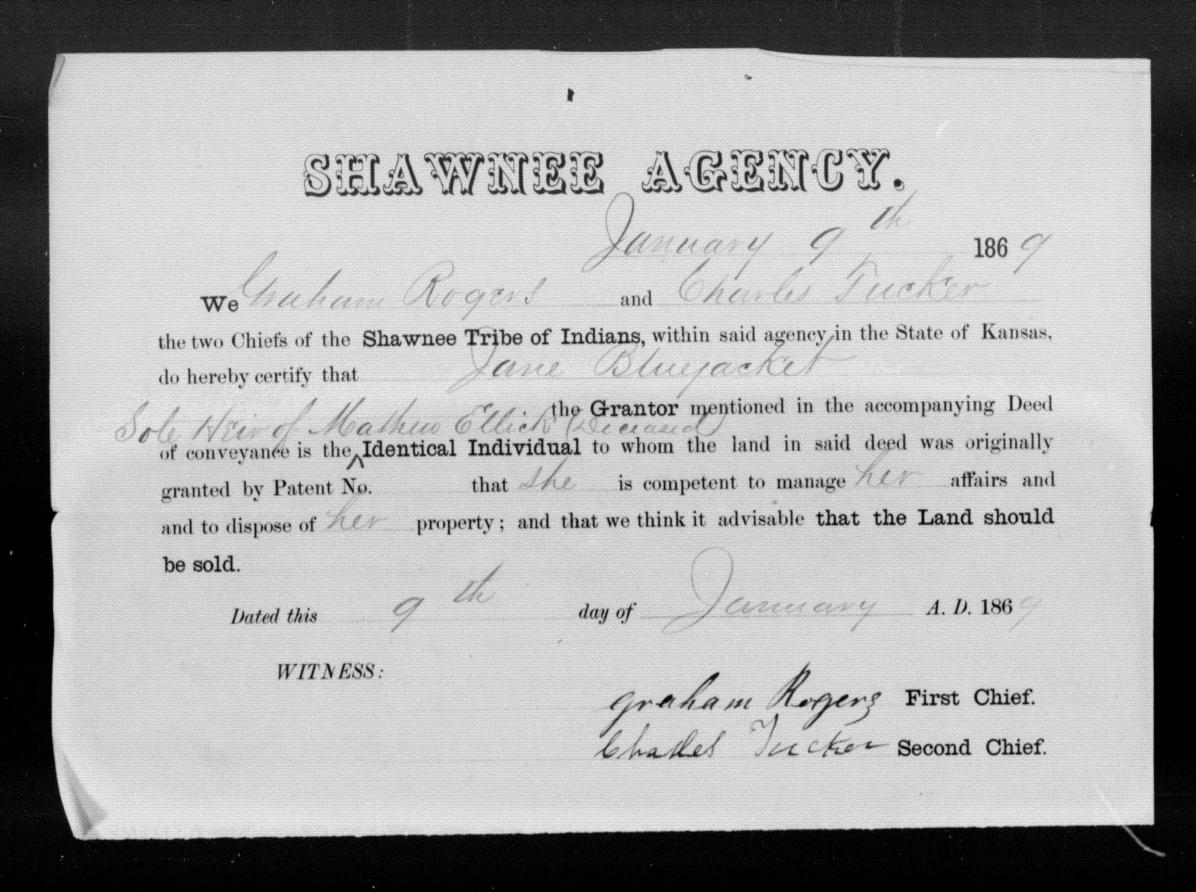 SHAWNEE AGENCY.
January 9th 1869
We Graham Rogers and Charles Tucker
the two Chiefs of the Shawnee Tribe of Indians, within said agency in the State of Kansas,
do hereby certify that Jane Bluejacket
the Grantor mentioned in the accompanying Deed
Sole Heir of Mathew Ellick (Deceased)
of conveyance is the ^ Identical Individual to whom the land in said deed was originally
granted by Patent No. that she is competent to manage her affairs and
and to dispose of her property; and that we think it advisable that the Land should
be sold.
Dated this 9th day of January A. D. 1869
WITNESS:
Graham Rogers First Chief.
Charles Tucker Second Chief.